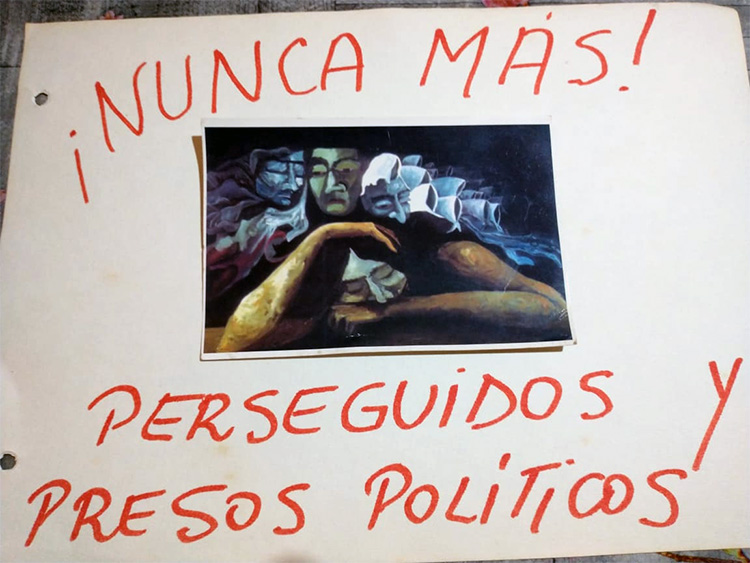 ¡NUNCA MÁS!
PERSEGUIDOS Y
PRESOS POLÍTICOS